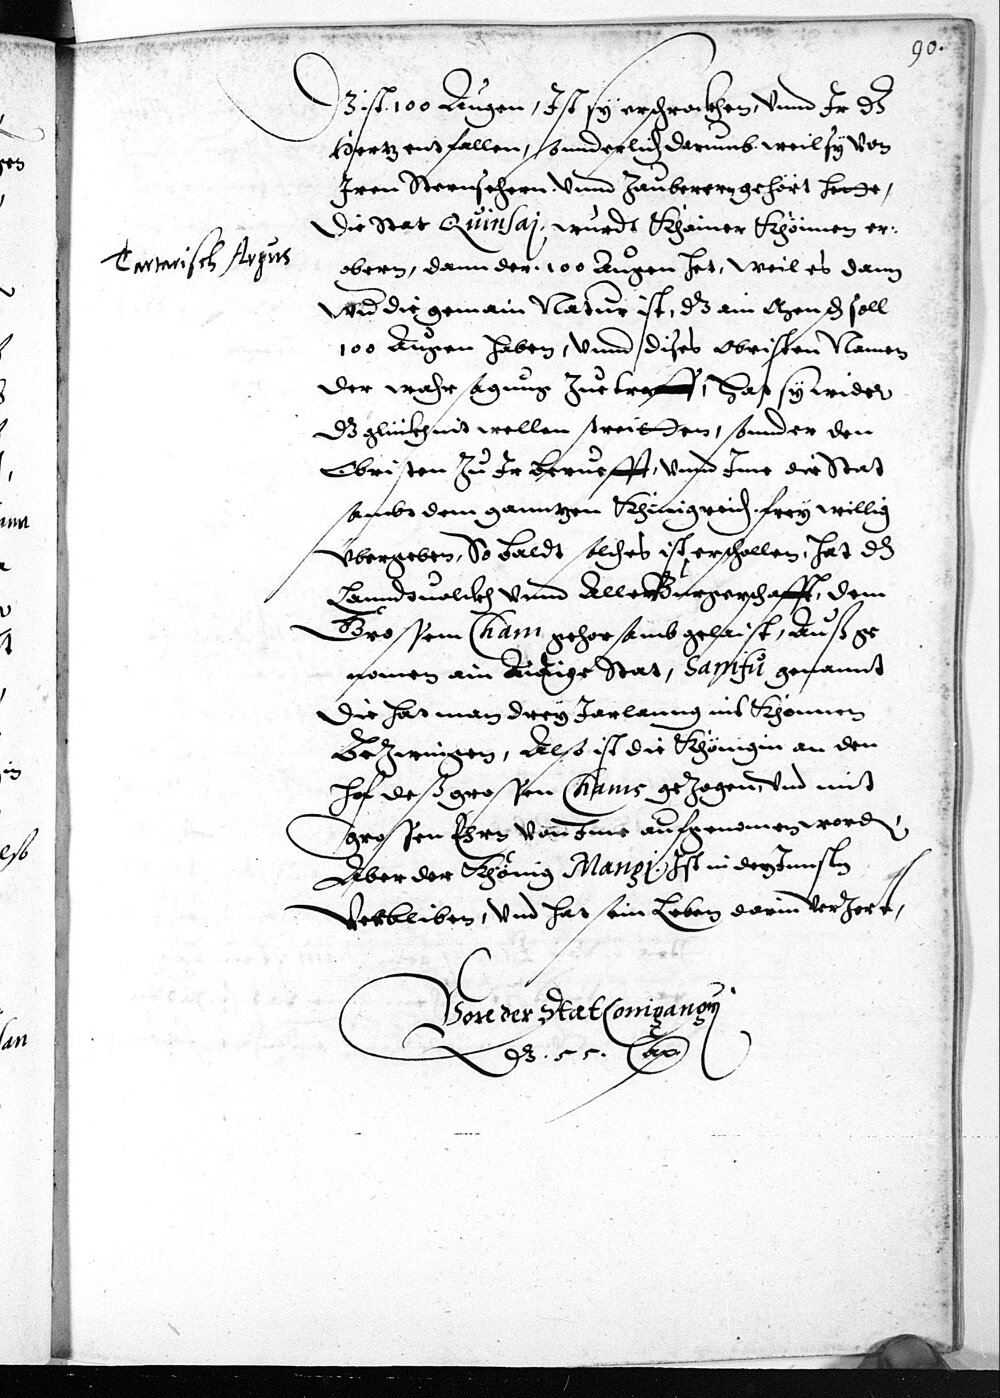 90.
Bist 100 Augen, Ist sy erschrockhen, Vnnd Ir dz
Hertz entfallen, sonderlich darumb weil sy von
Iren Sternsehern Vnnd Zauberern gehört hette,
Die Stat Quinsaj, wurdt khainer khönnen er:
obern, dann der 100 Augen het, weil es dann
wid die gemain Natur ist, dz ain Mensch soll
100 Augen haben, Vnnd dises Obristen Namen
der wahrsagung Zuetrifft, hat sy wider
dz glückh nit wellen streitten, sonder den
Obristen Zu Ir berueffft, Vnnd Ime die Stat
sambt dem ganntzen Khönigreich freywillig
vbergeben, So baldt solches ist erschollen, hat dz
Lanndtuolckh vnnd Alle Burgerschafft, dem
Grossen Cham gehorsamb gelaist, Auß ge
nomen ain Ainige Stat, Samfu genannt
Die hat man drey Jar lanng nit khönnen
bezwingen, Also ist die Khönigin an den
hof deß grossen Chams gezogen, vnd mit
grossen Ehrn von Ime aufgenomen worden,
Aber der Khönig Mangi, Ist in den Innsln
Verbliben, vnd hat sein Leben darin verzert,
Tartarisch Argus
Vonn der Stat Conigangui
Dz 55. Cap.